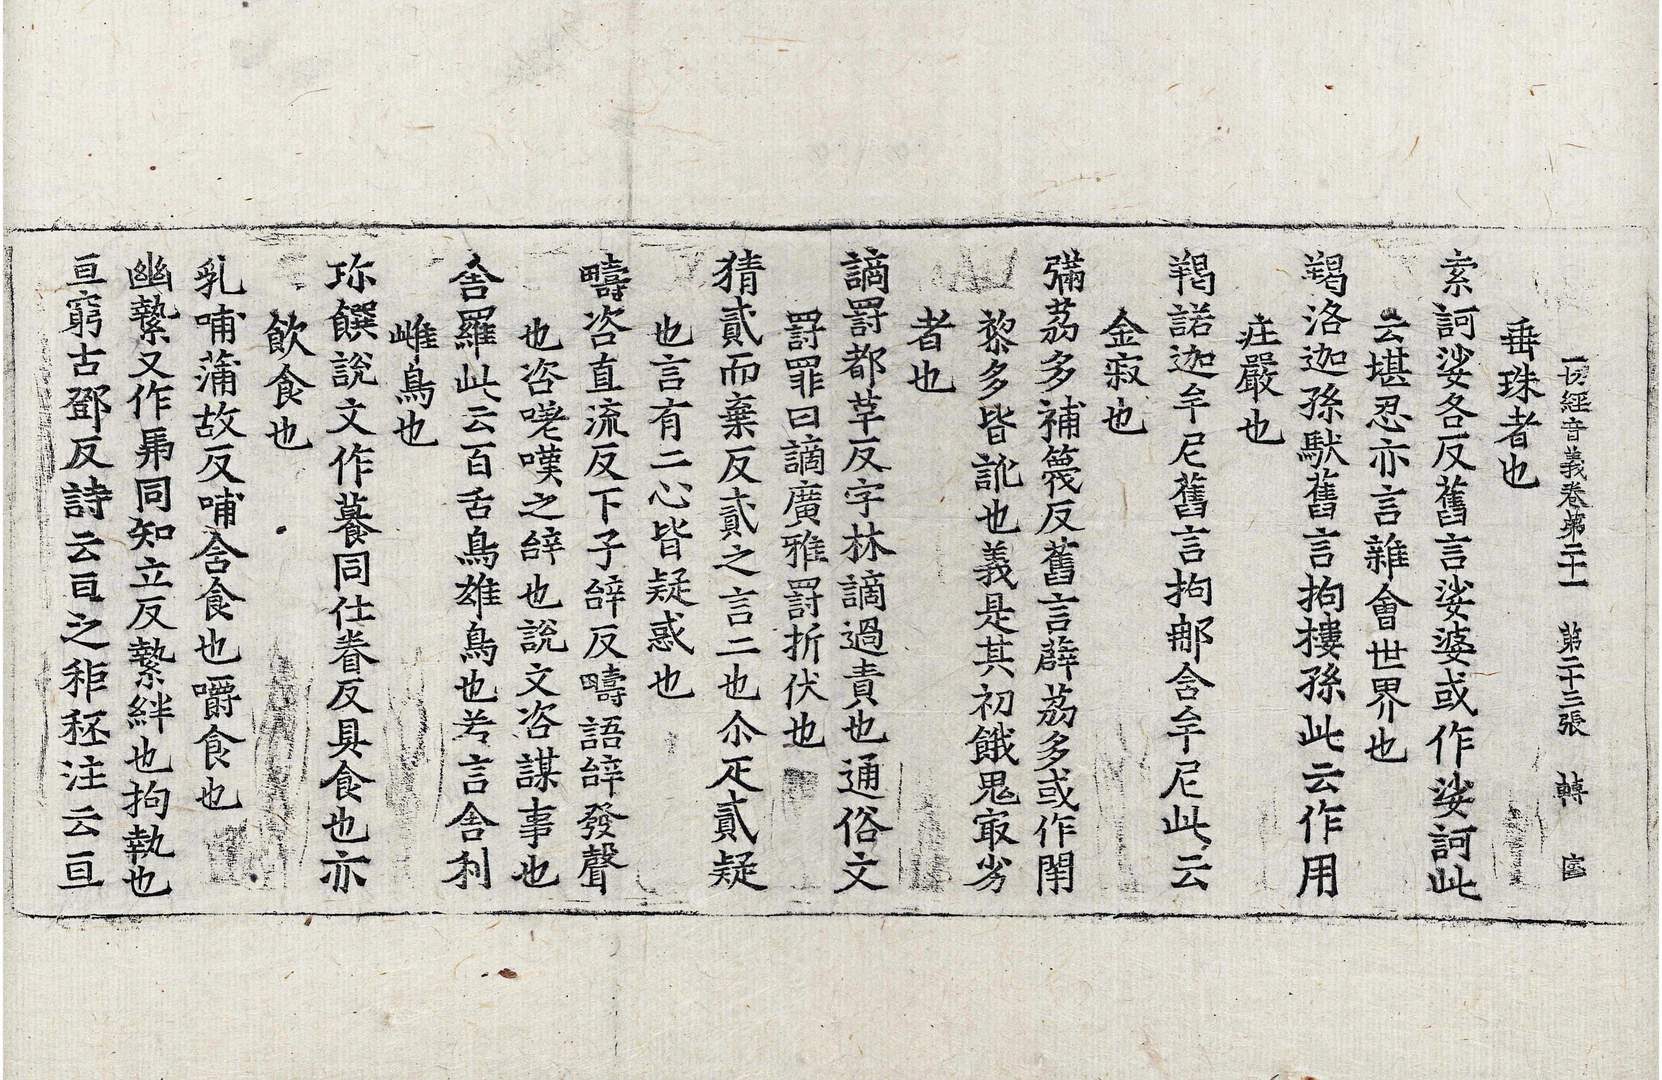 一切經音義卷第二十一 第二十三張 轉 宻
垂珠者也
索訶娑各反舊言娑婆或作娑訶此
云堪忍亦言雜會世界也
羯洛迦孫馱舊言拘樓孫此云作用
庄嚴也
羯諾迦牟尼舊言拘那含牟尼此云
金寂也
彌荔多補篾反舊言薜荔多或作閇
黎多皆訛也義是其初餓鬼㝡劣
者也
謫罰都革反字林謫過責也通俗文
罰罪曰謫廣雅罰折伏也
猜貳而棄反貳之言二也尒疋貳疑
也言有二心皆疑惑也
疇咨直流反下子辝反疇語辝發聲
也咨嗟嘆之辝也說文咨謀事也
舍羅此云百舌鳥雄鳥也考言舍利
雌鳥也
珎饌說文作籑同仕眷反具食也亦
飲食也
乳哺蒲故反哺含食也嚼食也
幽縶又作馽同知立反縶絆也拘執也
亘窮古鄧反詩云亘之秬秠注云亘